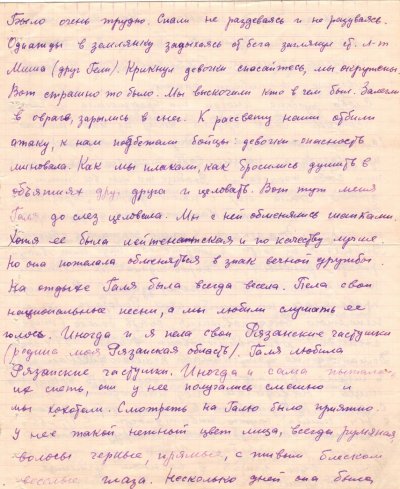 Было очень трудно. Спали не раздеваясь и не разуваясь.
Однажды в землянку задыхаясь от бега заглянул ст. л-т
Миша (друг Гали). Крикнул девочки спасайтесь, мы окружены.
Вот страшно то было. Мы выскочили кто в чем был. Залегли
в овраге, зарылись в снег. К рассвету наши отбили
атаку, к нам подбежали бойцы: девочки-опасность
миновала. Как мы плакали, как бросились душить в
объятиях друг друга и целовать. Вот тут меня
Галя до слез целовала. Мы с ней обменялись шапками.
Хотя ее была лейтенантская и по качеству лучше
но она пожелала обменяться в знак вечной дружбы.
На отдыхе Галя была всегда весела. Пела свои
национальные песни, а мы любили слушать ее
голос. Иногда и я пела свои Рязанские частушки
(родина моя Рязанская область). Галя любила
Рязанские частушки. Иногда и сама пыталась
их спеть, они у нее получались смешно и
мы хохотали. Смотреть на Галю было приятно.
У нее такой нежный цвет лица, всегда румяная,
волосы черные, прямые, с живым блеском
веселые глаза. Несколько дней она была,